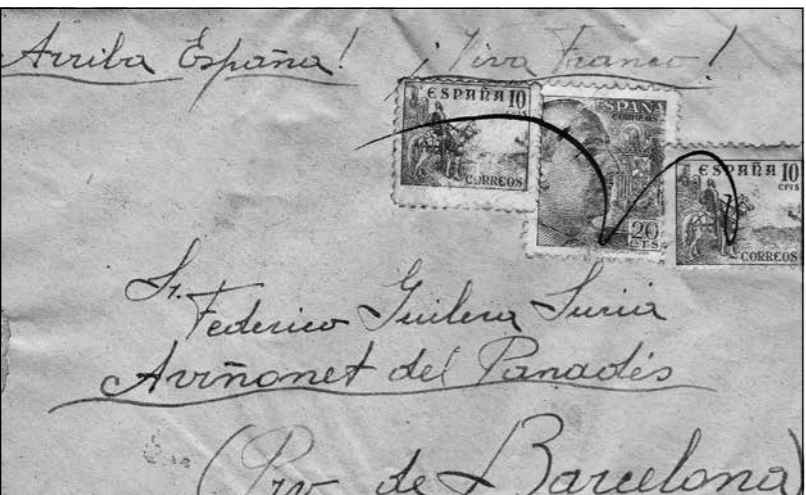 Arriba España! ¡Viva Franco!
ESPAÑA 10
CTS
CORREOS
ESPAÑA
CORREOS
20
CTS
ESPAÑA 10
CTS
CORREOS
Sr.
Federico Guilera Suriá
Aviñonet del Panadés
(Prv de Barcelona)